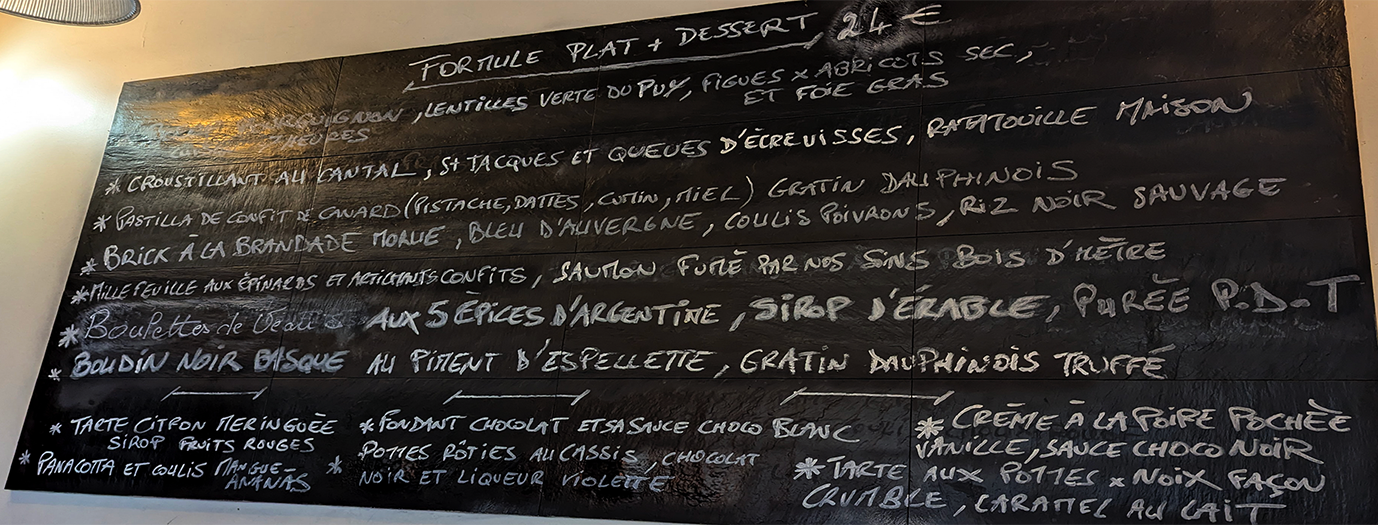 FORMULE PLAT + DESSERT 24 €
BOURGUIGNON, LENTILLES VERTE DU PUY, FIGUES x ABRICOTS SEC,
HEURES ET FOIE GRAS
* CROUSTILLANT AU CANTAL, ST JACQUES ET QUEUES D'ÈCREVISSES, RATATOUILLE MAISON
* PASTILLA DE CONFIT DE CANARD (PISTACHE, DATTES, CUMIN, MIEL) GRATIN DAUPHINOIS
* BRICK À LA BRANDADE MORUE, BLEU D'AUVERGNE, COULIS POIVRONS, RIZ NOIR SAUVAGE
* MILLE FEUILLE AUX ÉPINARDS ET ARTICHAUTS CONFITS, SAUMON FUMÈ PAR NOS SOINS BOIS D'HÊTRE
* Boulettes de Veau AUX 5 ÉPICES D'ARGENTINE, SIROP D'ÉRABLE, PURÉE P.D.T
* BOUDIN NOIR BASQUE AU PIMENT D'ESPELLETTE, GRATIN DAUPHINOIS TRUFFÉ
* TARTE CITRON MERINGUÈE
SIROP FRUITS ROUGES
* PANACOTTA ET COULIS MANGUE-
ANANAS
* FONDANT CHOCOLAT ET SA SAUCE CHOCO BLANC
* POMMES RÔTIES AU CASSIS, CHOCOLAT
NOIR ET LIQUEUR VIOLETTE
* CRÈME À LA POIRE POCHÈE
VANILLE, SAUCE CHOCO NOIR
* TARTE AUX POMMES x NOIX FAÇON
CRUMBLE, CARAMEL AU LAIT